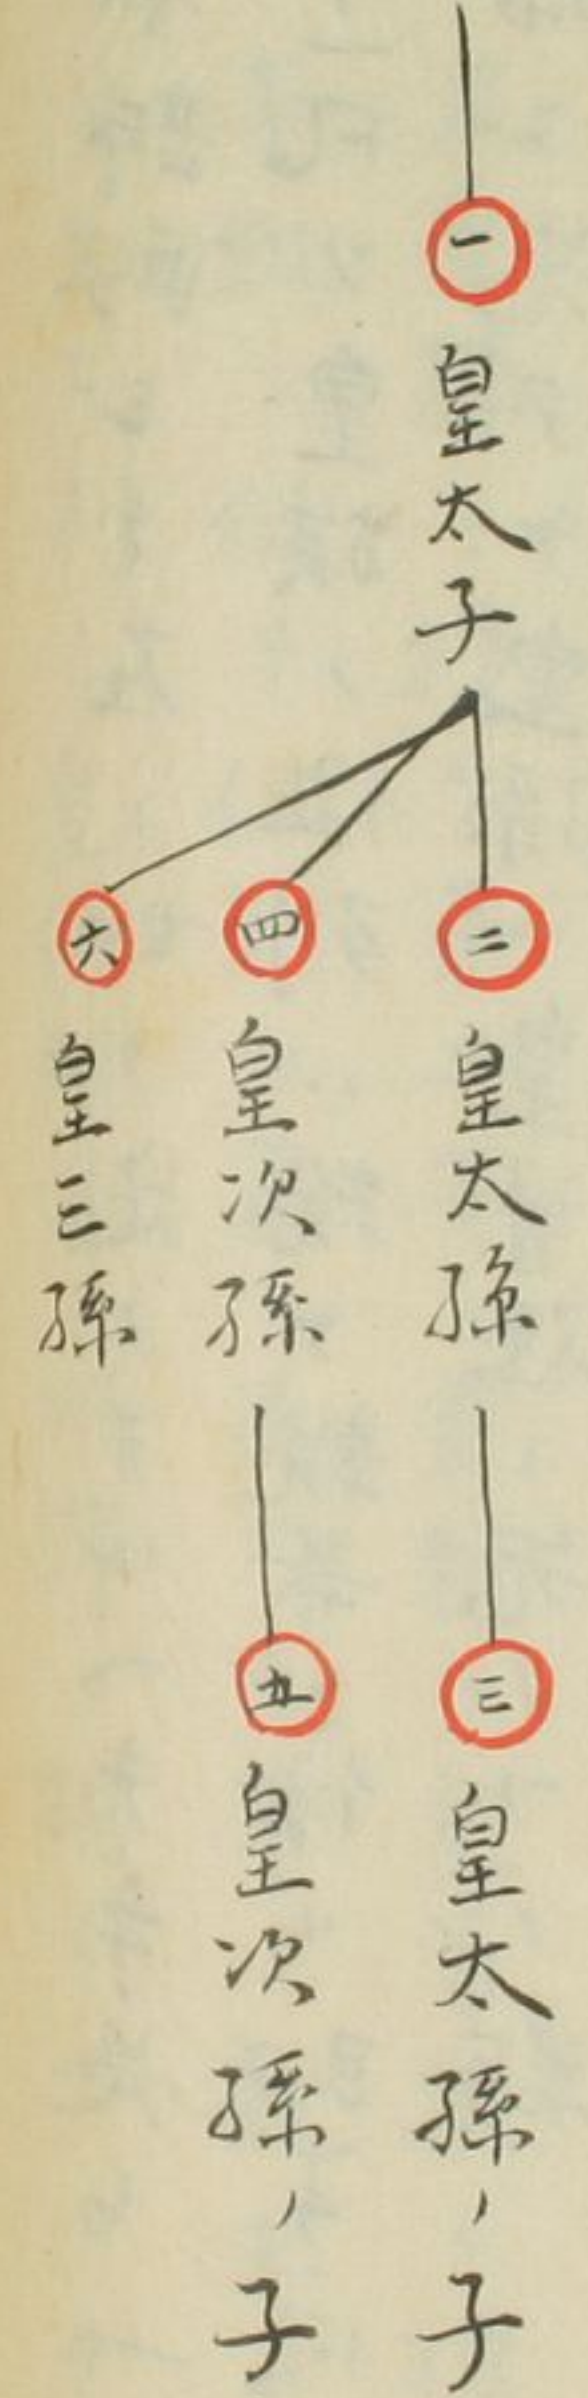 一
皇太子
二
皇太孫
三
皇太孫ノ子
四
皇次孫
五
皇次孫ノ子
六
皇三孫